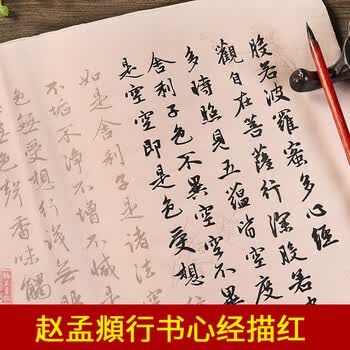 般若波羅蜜多心經
觀自在菩薩行深般若
多時照見五蘊皆空度
舍利子色不異空空不
是空空即是色受想
如是舍利子是諸法
不垢不淨不增不減
色無受想行識無
色聲香味觸
赵孟頫行书心经描红